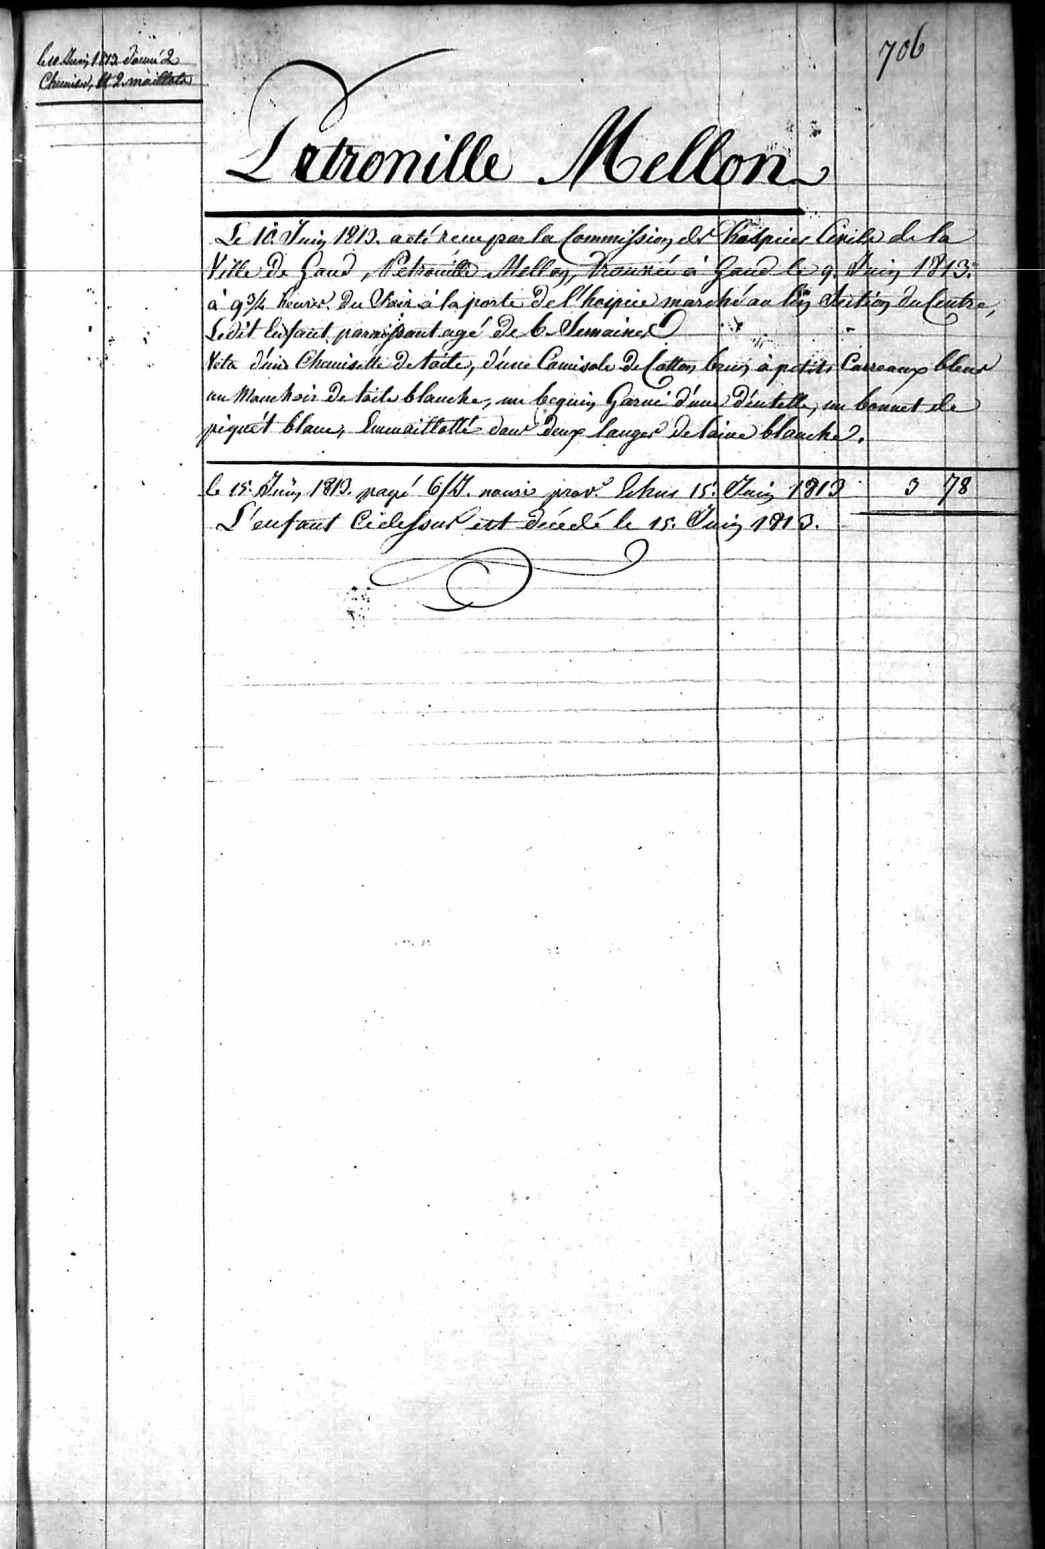 706
le 10 Juin 1813 donné 2
Chemises, et 2 maillots
Petronille Mellon
Le 10 Juin 1813. a été recu par la Commission des hospices Civils de la
Ville de Gand, Petronille Mellon, trouvée à Gand le 9. Juin 1813.
à 9 3/4 heures du Soir à la porte de l'hospice marché au lin Section du Centre,
Ledit Enfant paraissant agé de 6 Semaines
Vetu d'une Chemisette de toile, d'une Camisole de Cotton brun à petits Carreaux bleus
un Mouchoir de toile blanche, un beguin Garni d'une dentelle, un bonnet de
piquét blanc, Emmaillotté dans deux langes de laine blanche.
le 15. Juin 1813. payé 6/J. nouri prov.e 15. Juin 1813 3 78
L'enfant Cidessus est décedé le 15. Juin 1813.